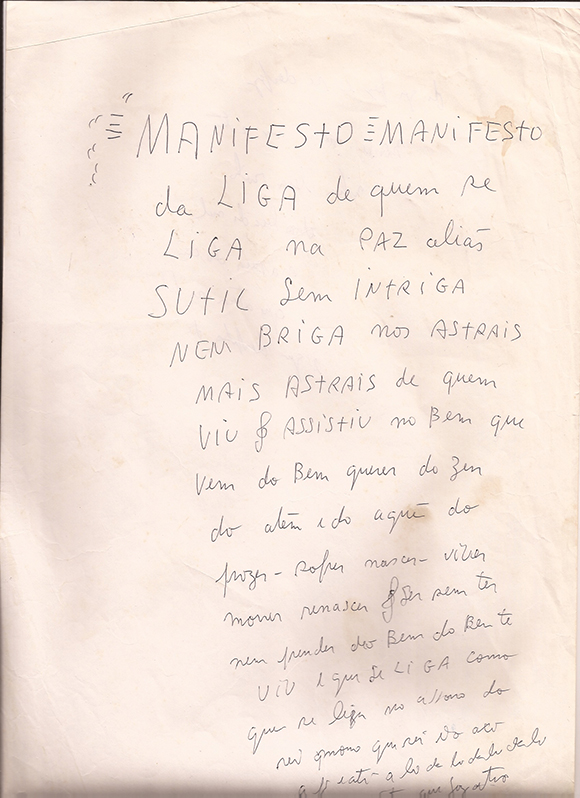 MANIFESTO MANIFESTO
da LIGA de quem se
LIGA na PAZ aliás
SUTIL Sem INTRIGA
NEM BRIGA nos ASTRAIS
MAIS ASTRAIS de quem
VIU & ASSISTIU no Bem que
Vem do Bem querer do Zen
do além e do aquém do
prazer-sofrer nascer-viver
morrer renascer & Ser sem ter
nem prender do Bem do Bem te
VIU e que Se LIGA como
que se liga no do
que